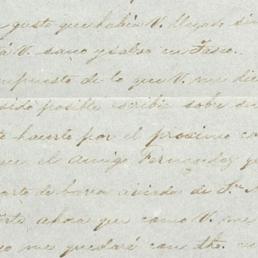 gusto que había V. llegado sin
V. sano y salvo en Tasco.
impuesto de lo que V. me dice
sido posible escribir sobre
hacerlo por el proximo co
el amigo Fernandez q
de haver aviado de S.n
ahora que como V. me
me quedaré con dho.